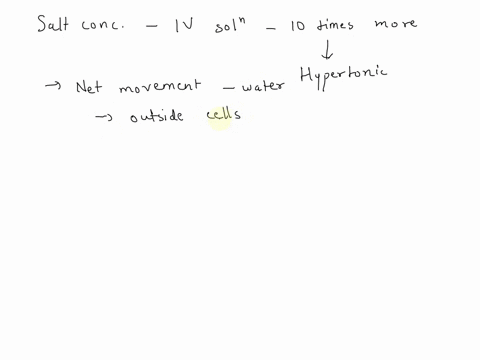 Salt conc. – IV solⁿ – 10 times more
↓
Hypertonic
→ Net movement – water
→ outside cells